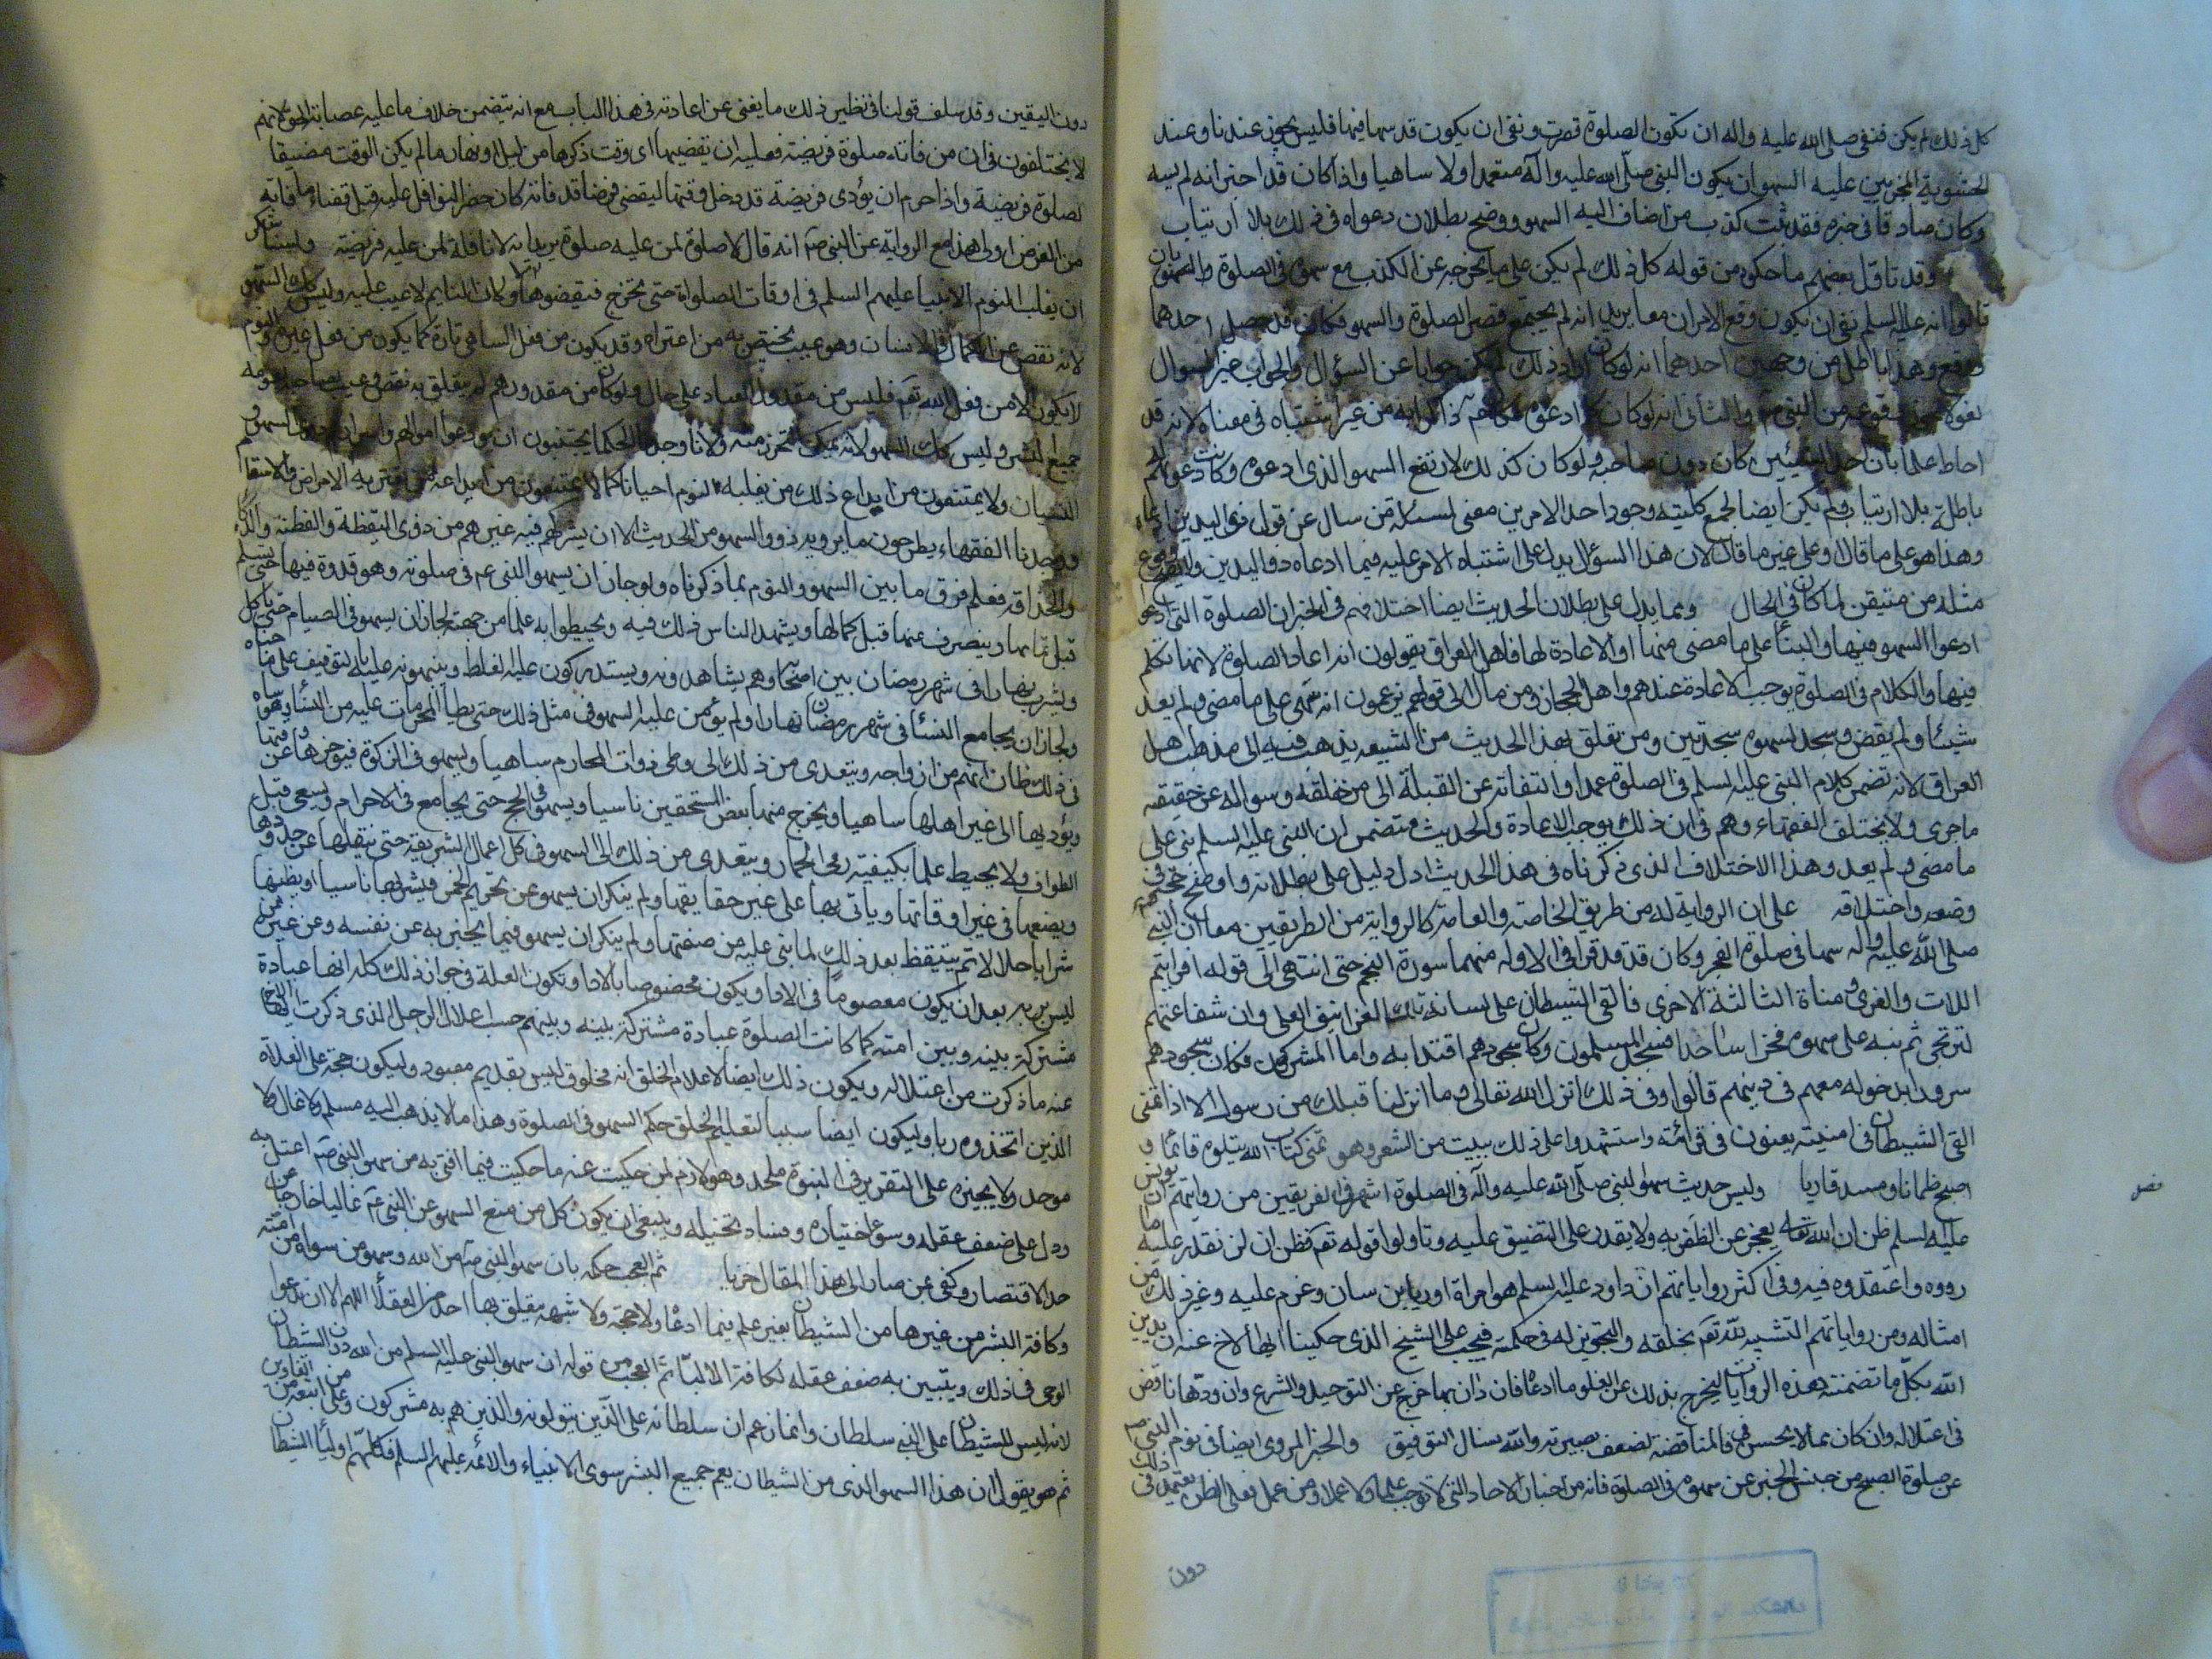 كل ذلك لم يكن فنفى صلى الله عليه واله ان تكون الصلوة قصرت ونفى ان يكون قد سها فيها فليس يجوز عندنا وعند
الحشوية المجوزين عليه السهو ان يكون النبى صلى الله عليه وآله متعمدا ولا ساهيا واذا كان قد اخبر انه لم يسه
وكان صادقا فى خبره فقد ثبت كذب من اضاف اليه السهو ووضح بطلان دعواه فى ذلك بلا ارتياب
وقد تاول بعضهم ما حكوه من قوله كل ذلك لم يكن على ما يخرجه عن الكذب مع سهوه فى الصلوة بان
قالوا انه عليه السلم نفى ان يكون وقع الامران معا يريد انه لم يجتمع قصر الصلوة والسهو فكان قد حصل احدهما
ووقع وهذا باطل من وجهين احدهما انه لو كان اراد ذلك لم يكن جوابا عن السؤال والجواب عن غير السوال
لغو لا يجوز وقوعه من النبى صم والثانى انه لو كان كما ادعوه لكان عم ذاكرا به من غير اشتباه فى معناه لانه قد
احاط علما بان احد الشيئين كان دون صاحبه ولو كان كذلك لارتفع السهو الذى ادعوه وكانت دعوتهم
باطلة بلا ارتياب ولم يكن ايضا لجمع كليته وجود احد الامرين معنى لمسئلته من سال عن قول ذى اليدين
وهذا هو على ما قال وعلى غير ما قال لان هذا السؤال يدل على اشتباه الامر عليه فيما ادعاه ذو اليدين ولا يصح وقوع
مثله من متيقن لما كان فى الحال ومما يدل على بطلان الحديث ايضا اختلافهم فى الخبر ان الصلوة التى
ادعوا السهو فيها والبنأ على ما مضى منها او الاعادة لها فاهل العراق يقولون انه اعاد الصلوة لانه تكلم
فيها والكلام فى الصلوة يوجب الاعادة عندهم واهل الحجاز ومن مال الى قولهم يزعمون انه بنى على ما مضى ولم يعد
شيئا ولم يقض وسجد لسهوه سجدتين ومن تعلق بهذا الحديث من الشيعه يذهب فيه الى مذهب اهل
العراق لانه تضمن كلام النبى عليه السلم فى الصلوة عمدا والتفاته عن القبلة الى من خلفه وسواله عن حقيقه
ما جرى ولا يختلف الفقهاء وهم فى ان ذلك يوجب الاعادة والحديث متضمن ان النبى عليه السلم بنى على
ما مضى ولم يعد وهذا الاختلاف الذى ذكرناه فى هذا الحديث ادل دليل على بطلانه واوضح حجة فى
وضعه واختلاقه على ان الرواية له من طريق الخاصة والعامة كالرواية من الطريقين معا ان النبى
صلى الله عليه واله سها فى صلوة الفجر وكان قد قرا فى الاوله منهما سورة النجم حتى انتهى الى قوله افرايتم
اللات والعزى ومناة الثالثة الاخرى فالقى الشيطان على لسانه تلك الغرانيق العلى وان شفاعتهم
لترتجى ثم نبه على سهوه فخر ساجدا فسجد المسلمون وكان سجودهم اقتدا به واما المشركون فكان سجودهم
سرورا بدخوله معهم فى دينهم قالوا وفى ذلك انزل الله تعالى وما ارسلنا قبلك من رسول الا اذا تمنى
القى الشيطان فى امنيته يعنون فى قرائته واستشهدوا على ذلك ببيت من الشعر وهو تمنى كتاب الله يتلوه قائما و
اصبح ظمانا ومسد قاريا وليس حديث سهو النبى صلى الله عليه وآله فى الصلوة اشهر فى الفريقين من روايتهم ان يونس
عليه السلم ظن ان الله تعالى يعجز عن الظفر به ولا يقدر على التضيق عليه وتاولوا قوله تعم فظن ان لن نقدر عليه ما
رووه واعتقدوه فيه وفى اكثر رواياتهم ان داود عليه السلم هوا مراة اوريا بن سان وغرم عليه وغير ذلك من
امثاله ومن رواياتهم التشبيه لله تعم بخلقه والتجويز له فى حكمته فيجب على الشيخ الذى حكينا ايها الاخ عنه ان يدين
الله بكل ما تضمنته هذه الروايات ليخرج بذلك عن الغلو وما ادعاه فان دان بها خرج عن التوحيد والشرع وان ردها ناقض
فى اعتلاله وان كان مما لا يحسن فى المناقضة لضعف بصيرته والله نسال التوفيق والخبر المروى ايضا فى نوم النبى صم
عن صلوة الصبح من جنس الخبر عن سهوه فى الصلوة فانه من اخبار الاحاد التى لا توجب علما ولا عملا ومن عمل فعلى الظن يعتمد فى ذلك
دون
فصل
دون اليقين وقد سلف قولنا فى نظير ذلك ما يغنى عن اعادته فى هذا الباب مع انه يتضمن خلاف ما عليه عصابة الحق لانهم
لا يختلفون فى ان من فاتته صلوة فريضة فعليه ان يقضيها اى وقت ذكرها من ليل او نهار ما لم يكن الوقت مضيقا
لصلوة فريضة واذا حرم ان يؤدى فريضة قد دخل وقتها ليقضى فرضا قد فاته كان حظر النوافل عليه قبل قضاء ما فاته
من الفرض اولى هذا مع الرواية عن النبى صم انه قال لا صلوة لمن عليه صلوة يريد انه لا نافلة لمن عليه فريضة ولسنا ننكر
ان يغلب النوم الانبيا عليهم السلم فى اوقات الصلواة حتى تخرج فيقضوها وكان النايم لا عيب عليه وليس كذلك السهو
لانه نقص عن الكمال فى الانسان وهو عيب يختص به من اعتراه وقد يكون من فعل الساهى تارة كما يكون من فعل غيره والنوم
لا يكون الا من فعل الله تعم فليس من مقدور العباد على حال ولو كان من مقدورهم لم يتعلق به نقص وعيب لصاحبه لعمومه
جميع البشر وليس كذلك السهو لانه يمكن التحرز منه ولانا وجدنا الحكما يجتنبون ان يودعوا اموالهم واسرارهم ذوى السهو و
النسيان ولا يمتنعون من ايداع ذلك من يغلبه النوم احيانا كما لا يمتنعون من ايداعه من تعتريه الامراض والاسقام
ووجدنا الفقهاء يطرحون ما يرويه ذوو السهو من الحديث الا ان يشركهم فيه غيرهم من ذوى اليقظة والفطنة والذكاء
والحذاقه فعلم فرق ما بين السهو والنوم بما ذكرناه ولو جاز ان يسهو النبى عم فى صلوته وهو قدوة فيها حتى يسلم
قبل تمامها وينصرف عنها قبل كمالها ويشهد الناس ذلك فيه ويحيطوا به علما من جهته لجاز ان يسهو فى الصيام حتى ياكل
ويشرب نهارا فى شهر رمضان بين اصحابه وهم يشاهدونه ويستدركون عليه الغلط وينبهونه عليه بالتوقيف على ما جناه
ولجاز ان يجامع النسأ فى شهر رمضان نهارا ولم يؤمن عليه السهو فى مثل ذلك حتى يطأ المحرمات عليه من النسأ وهو ساه
فى ذلك ظان انهم من ازواجه ويتعدى من ذلك الى وطى ذوات المحارم ساهيا ويسهو فى الزكوة فيؤخرها عن وقتها
ويؤديها الى غير اهلها ساهيا ويخرج منها بعض المستحقين ناسيا ويسهو فى الحج حتى يجامع فى الاحرام ويسعى قبل
الطواف ولا يحيط علما بكيفيته رمى الجمار ويتعدى من ذلك الى السهو فى كل اعمال الشريعة حتى ينقلها عن حدودها
ويضعها فى غير اوقاتها وياتى بها على غير حقايقها ولم ينكر ان يسهو عن تحريم الخمر فيشربها ناسيا او يظنها
شرابا حلالا ثم يتيقظ بعد ذلك لما بنى عليه من صفتها ولم ينكر ان يسهو فيما يخبر به عن نفسه وعن غيره ممن
ليس بربه بعد ان يكون معصوما فى الادا ويكون مخصوصا بالادا وتكون العلة فى جواز ذلك كله انها عبادة
مشتركة بينه وبين امته كما كانت الصلوة عبادة مشتركة بينه وبينهم حسب اعلال الرجل الذى ذكرت ايها الاخ
عنه ما ذكرت من اعتلاله ويكون ذلك ايضا لاعلام الخلق انه مخلوق ليس بقديم معبود وليكون حجة على الغلاة
الذين اتخذوه ربا وليكون ايضا سببا لتعليم الخلق حكم السهو فى الصلوة وهذا ما لا يذهب اليه مسلم ولا غال ولا
موحد ولا يجيزه على التقرير فى النبوة ملحد وهو لازم لمن حكيت عنه ما حكيت فيما افتى به من سهو النبى صم اعتل به
ودل على ضعف عقله وسوء اختياره وفساد تخيله وينبغى ان يكون كل من منع السهو عن النبى عم غاليا خارجا عن
حد الاقتصار وكفى بمن صار الى هذا المقال خزيا ثم العجب حكمه بان سهو النبى صم من الله وسهو من سواه من امته
وكافة البشر من غيرها من الشيطان بغير علم فيما ادعاه ولا حجة ولا شبهه يتعلق بها احد من العقلأ اللهم الا ان يدعوا
الوحى فى ذلك ويتبين به ضعف عقله لكافة الالبا ثم العجب من قوله ان سهو النبى عليه السلم من الله دون الشيطان
لانه ليس للشيطان على النبى سلطان وانما زعم ان سلطانه على الذين يتولونه والذين هم به مشركون وعلى من اتبعه من الغاوين
ثم هو يقول ان هذا السهو الذى من الشيطان يعم جميع البشر سوى الانبياء والائمه عليهم السلم فكلهم اوليأ الشيطان